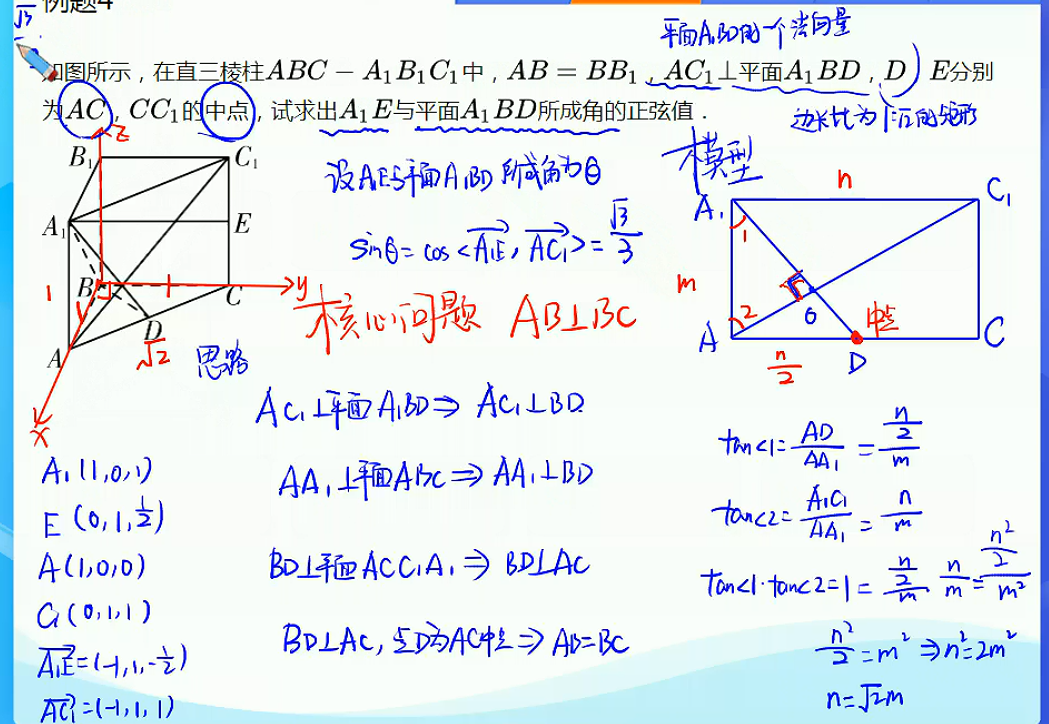 例题4
√3
平面A₁BD的一个法向量
如图所示，在直三棱柱ABC－A₁B₁C₁中，AB＝BB₁，AC₁⊥平面A₁BD，D，E分别
为AC，CC₁的中点，试求出A₁E与平面A₁BD所成角的正弦值．
边长比为1:√2的矩形
z
B₁
C₁
A₁
E
B
C
y
1
D
√2
A
x
设A₁E与平面A₁BD所成角为θ
sinθ=cos<A₁E，AC₁>=√3/3
核心问题 AB⊥BC
思路
AC₁⊥平面A₁BD⇒AC₁⊥BD
AA₁⊥平面ABC⇒AA₁⊥BD
BD⊥平面ACC₁A₁⇒BD⊥AC
BD⊥AC，点D为AC中点⇒AB=BC
A₁(1,0,1)
E(0,1,1/2)
A(1,0,0)
C₁(0,1,1)
A₁E=(-1,1,-1/2)
AC₁=(-1,1,1)
模型
n
A₁
C₁
1
m
2
O
中点
A
C
n/2
D
tan<1=AD/AA₁=(n/2)/m
tan<2=A₁C₁/AA₁=n/m
tan<1·tan<2=1=(n/2)/m·n/m=(n²/2)/m²
n²/2=m²⇒n²=2m²
n=√2m